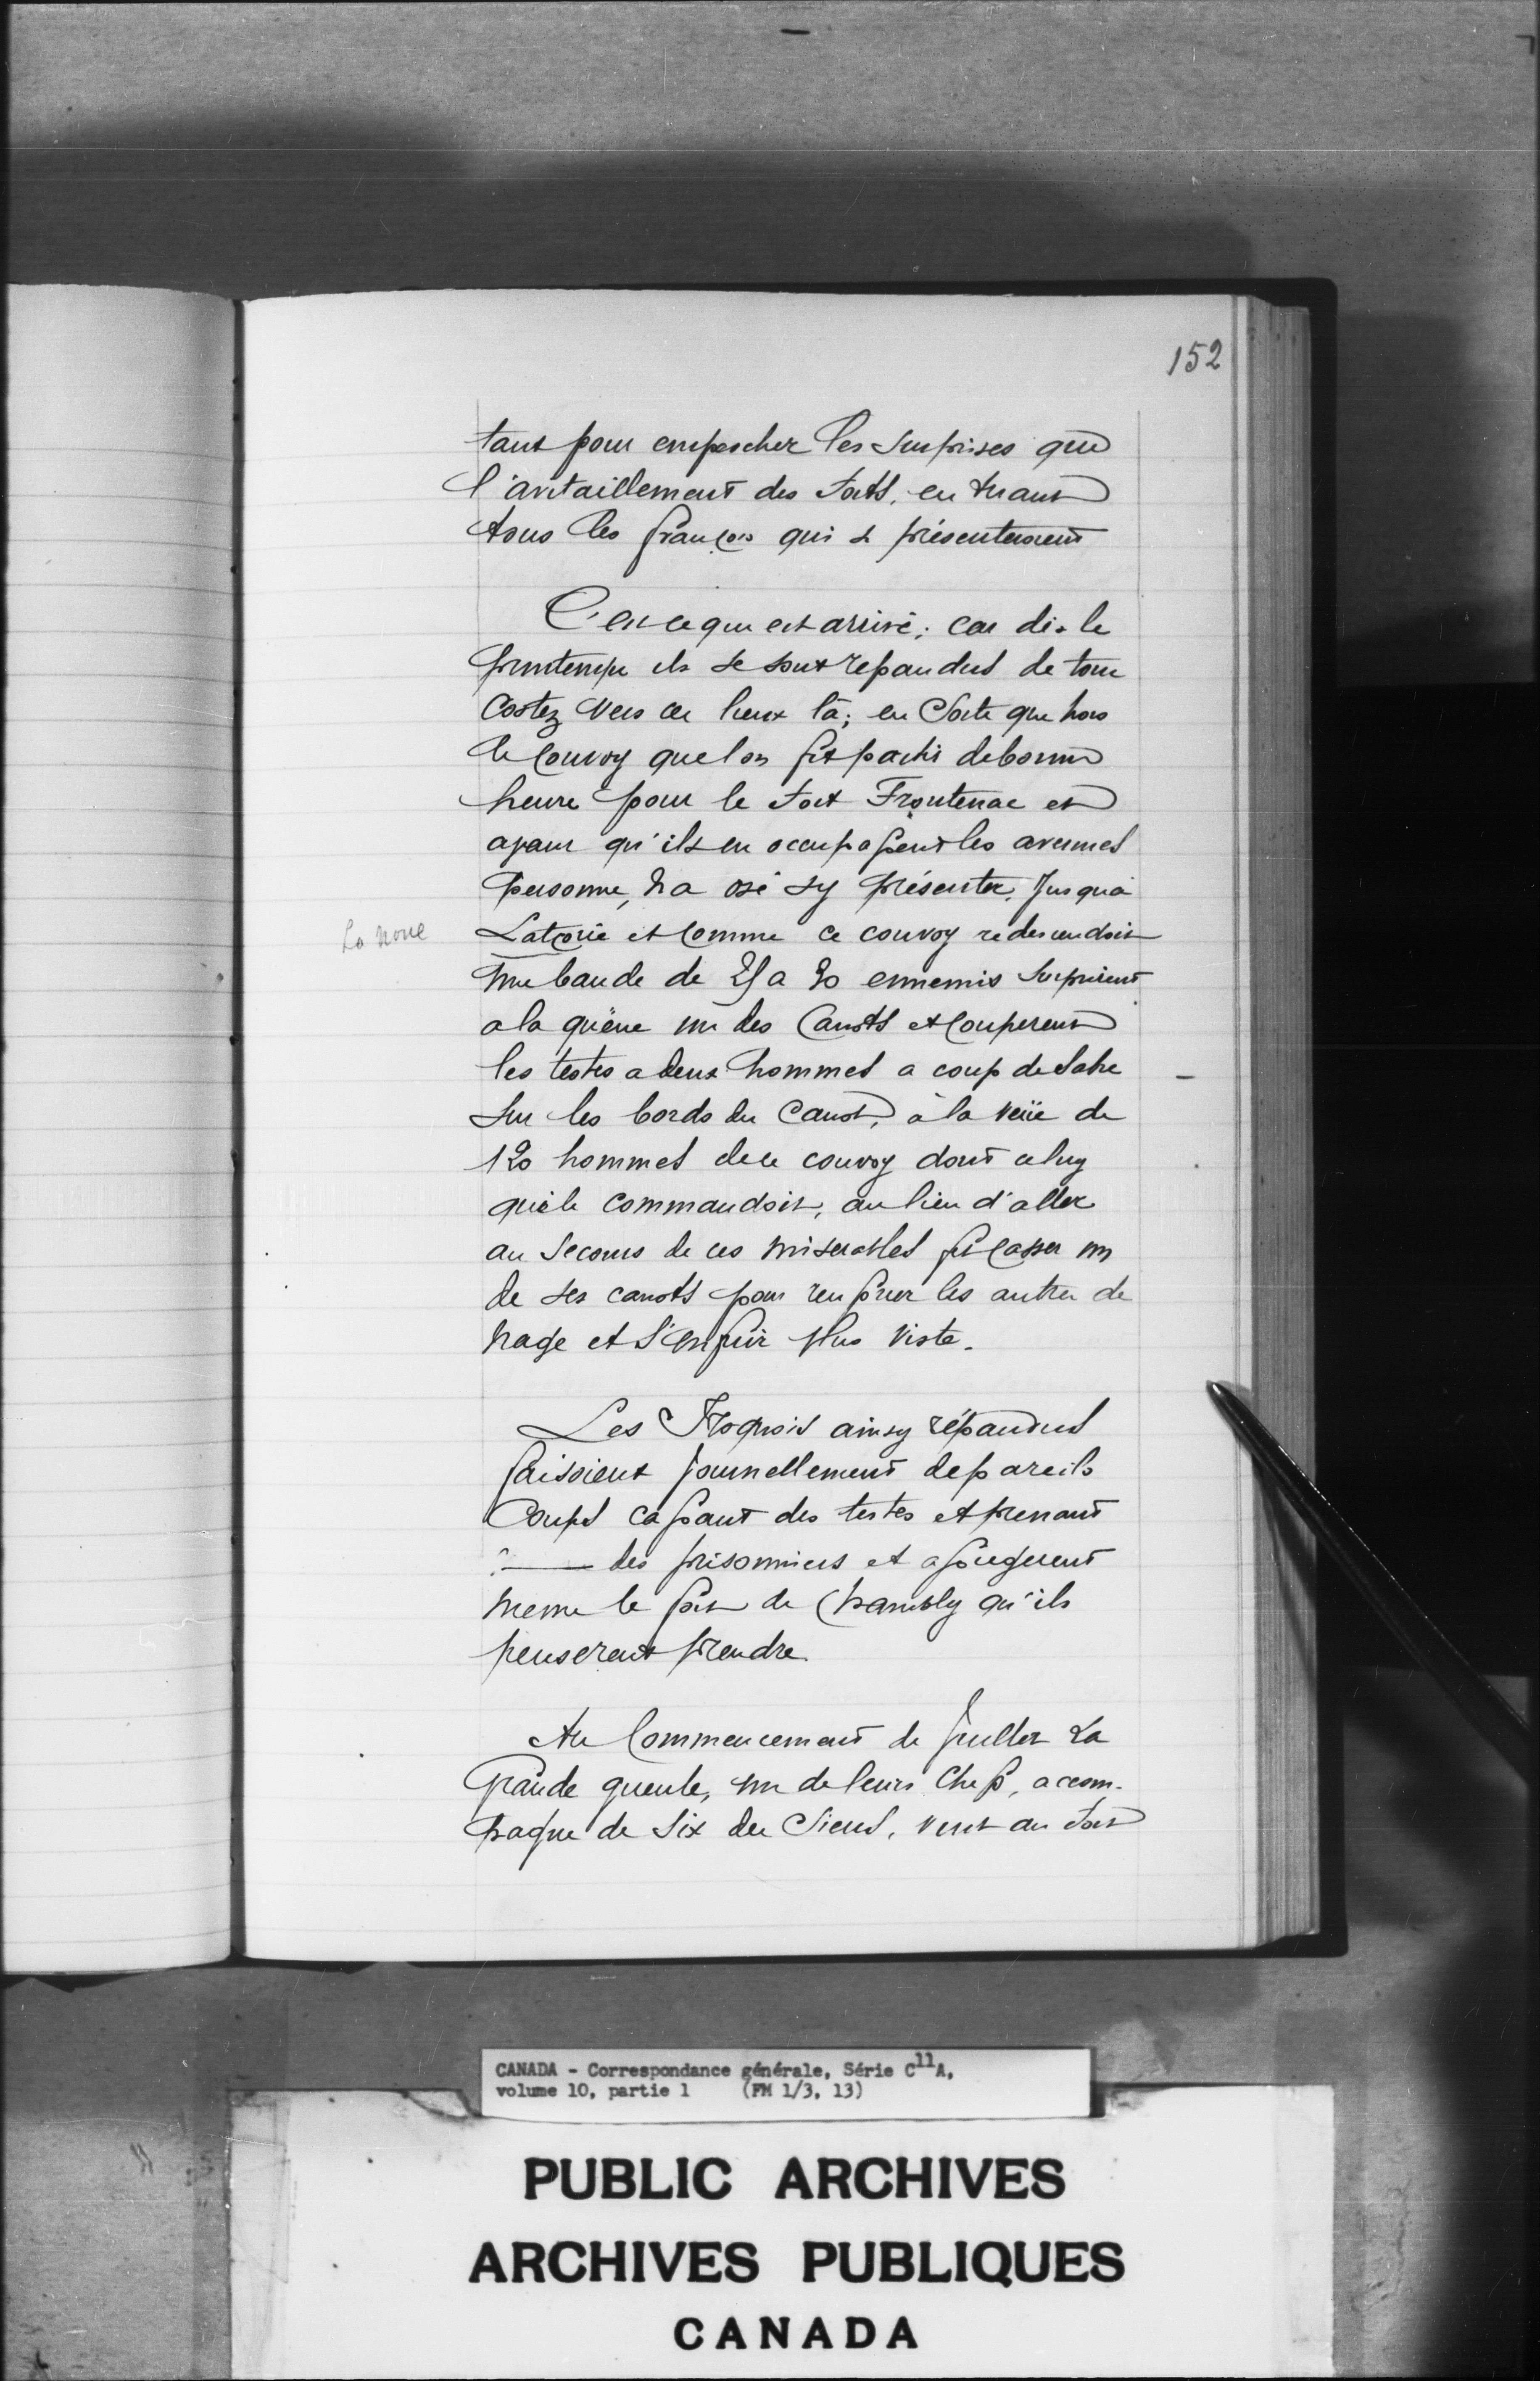 152
tant pour empescher les surprises que
l'avitaillement des forts, en tuant
tous les françois qui se présenteroient
C'est ce qui est arrivé; car dès le
printemps ils se sont repandus de tous
costez vers ces lieux là; en Sorte que hors
le Convoy que lon fit partir de bonne
heure pour le fort Frontenac et
avant qu'ils en occupassent les avenues
personne, n'a osé sy présenter, Jusqua
La noue
et comme ce convoy redescendoit
une bande de 25 a 30 ennemis Surprirent
a la queüe un des Canots et Couperent
les testes a deux hommes a coup de Sabre
Sur les bords du Canot, à la veüe de
120 hommes de ce convoy dont celuy
qui le commandoit, au lieu d'aller
au Secours de ces miserables fit casser un
de ses canots pour renforcer les autres de
nage et s'enfuir plus viste.
Les Iroquois ainsy répandus
faisoient journellement de pareils
Coups cassant des testes et prenant
? — des prisonniers et assiegerent
meme le fort de Chambly qu'ils
penserent prendre.
Au Commencement de Juillet La
Grande gueule, un de leurs Chefs, accom-
pagné de Six des Siens, vint au fort
CANADA - Correspondance générale, Série C11A,
volume 10, partie 1 (FM 1/3, 13)
PUBLIC ARCHIVES
ARCHIVES PUBLIQUES
CANADA